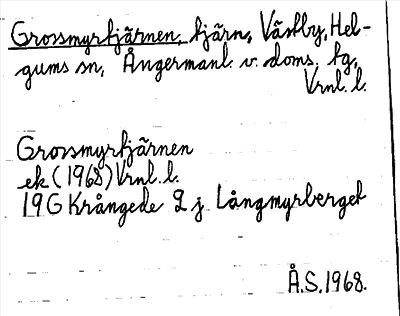 Grossmyrtjärnen, tjärn, Västby, Hel-
gums sn, Ångermanl. v. doms. tg,
Vrnl. l.
Grossmyrtjärnen
ek (1968) Vrnl. l.
19G Krångede 2 j Långmyrberget
Å.S. 1968.